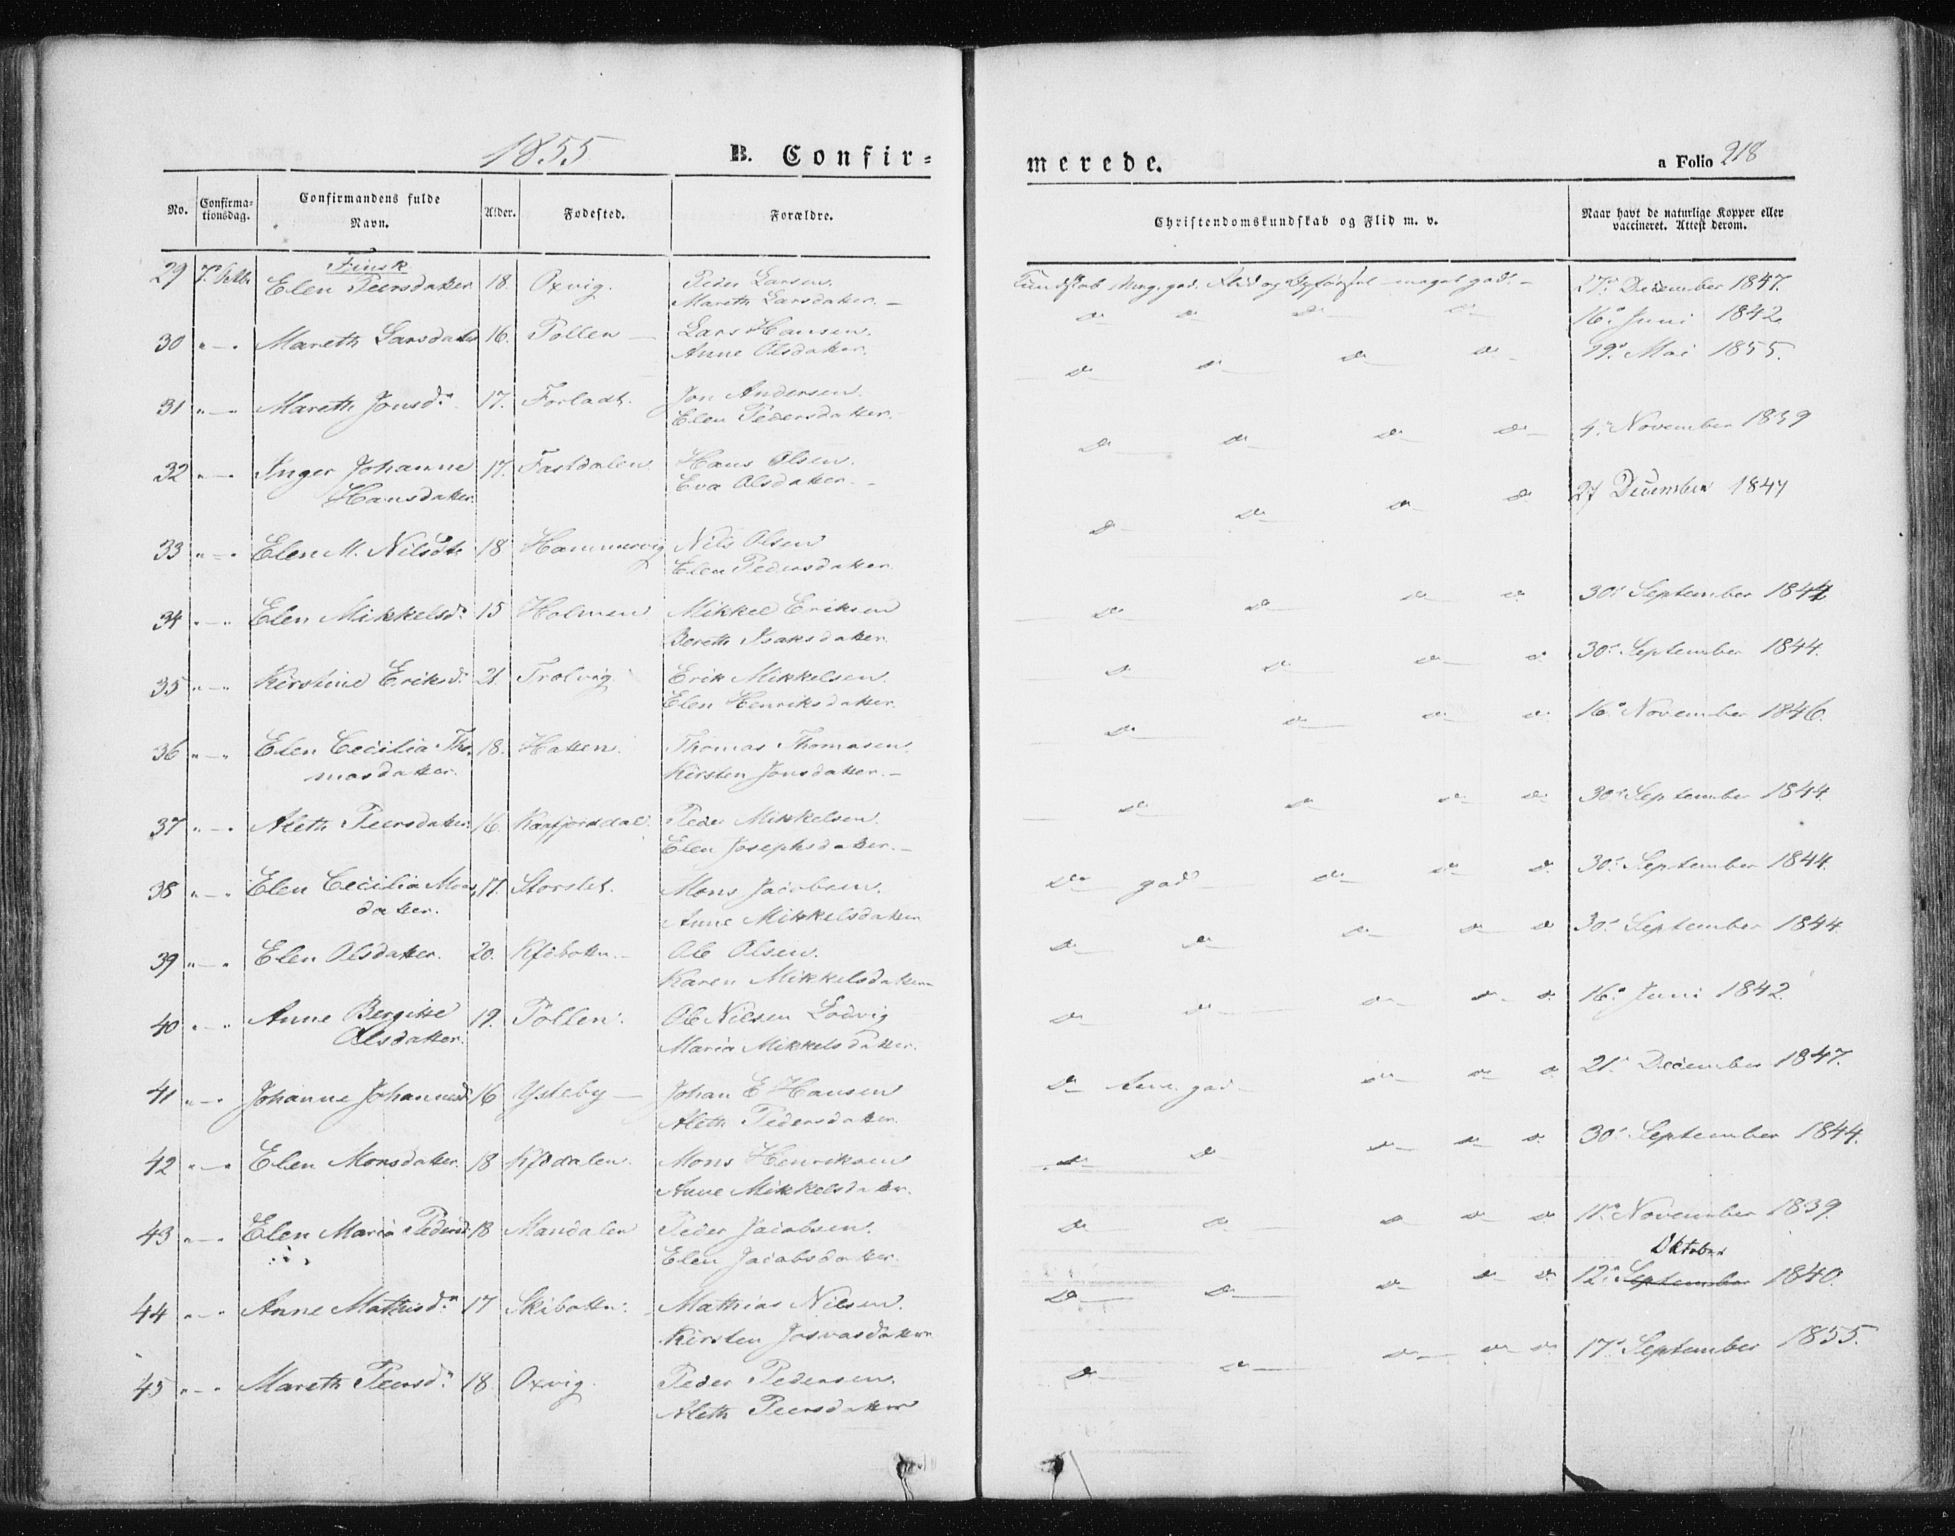 1855 B. Confir=
merede. a Folio 218
No. Confirma-tionsdag. Confirmandens fulde Navn. Alder. Fødested. Forældre. Christendomskundskab og Flid m. v. Naar havt de naturlige Kopper eller vaccineret. Attest derom.
Finsk
29 7de Oktbr Elen Peersdatter 18. Oxvig. Peder Larsen.
Mareth Larsdatter. —
Kundskab meg. god. Flid og Opførsel meget god. — 27de December 1847.
30 " — " Mareth Larsdatter 16. Pollen — Lars Hansen.
Anne Olsdatter.
do do do do 16de Juni 1842.
31 " — " Mareth Jonsdr. 17. Forladt. Jon Andersen.
Elen Pedersdatter.
do do do do 19de Mai 1855.
32 " — " Inger Johanne 17. Fastdalen Hans Olsen.
Hansdatter. Eva Olsdatter. —
do do do do 4de November 1839
33 " — " Elen M. Nilsdtr 18 Hammervig Nils Olsen
Elen Pedersdatter.
do do do do 27 December 1847
34 " — " Elen Mikkelsdr. 15 Holmen Mikkel Eriksen
Bereth Isaksdatter.
do do do do 30te September 1844
35 " — " Kirstine Eriksdr. 21. Trolvig. Erik Mikkelsen.
Elen Henriksdatter.
do do do do 30te September 1844.
36 " — " Elen Cecilia Tho- 18. Hatten. Thomas Thomasen.
masdatter. Kirsten Jonsdatter. —
do do do do 16de November 1846.
37 " — " Aleth Peersdatter. 16. Kaafjorddal. Peder Mikkelsen.
Elen Josephsdatter. —
do do do do 30te September 1844.
38 " — " Elen Cecilia Mons 17. Storslet. Mons Jacobsen.
datter. Anne Mikkelsdatter
do god do do do 30te September 1844.
39 " — " Elen Olsdatter. 20. Kfdbotten. — Ole Olsen.
Karen Mikkelsdatter
do do do do do 30te September 1844.
40 " — " Anne Bergitte 19. Pollen. Ole Nilsen Lodvig
Olsdatter. Maria Mikkelsdatter.
do do do do do 16de Juni 1842.
41 " — " Johanne Johannesdr 16 Ysteby — Johan E Hansen
Aleth Pedersdatter.
do god do do do 21de December 1847.
42 " — " Elen Monsdatter. 18 Kfddalen. Mons Henriksen
Anne Mikkelsdatter.
do do do do do 30te September 1844.
43 " — " Elen Maria Pedersd 18 Mandalen Peder Jacobsen.
Elen Jacobsdatter.
do do do do do 11te November 1839.
Oktober
44 " — " Anne Mathisdr. 17 Skibotten. Mathias Nilsen.
Kirsten Josvasdatter
do do do do do 12te September 1840.
45 " — " Mareth Peersdr. 18. Oxvig. Peder Pedersen.
Aleth Peersdatter
do do do do do 17de September 1855.